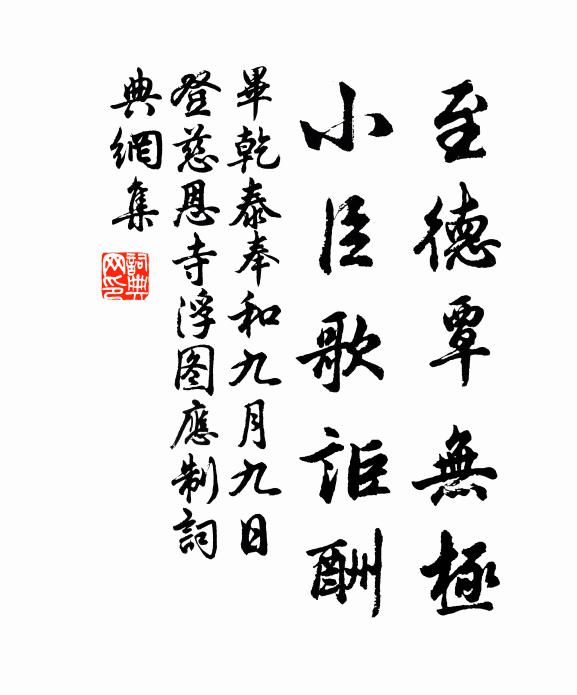 至德覃無極
小臣歌詎酬
畢乾泰奉和九月九日
登慈恩寺浮图應制詞
典網集
詞典网印